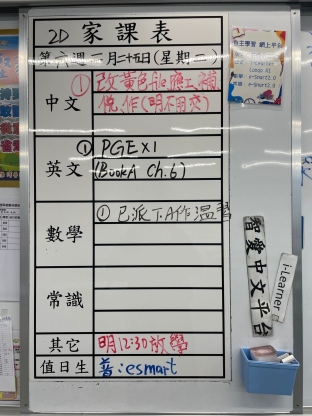 2D 家課表
第六週一月二十五日(星期二)
中文
① 改黃色file應工補
作(明不用交)
英文
① PGE X1
(Book A Ch.6)
數學
① 已派下A作溫習
常識
其它
明12:30放學
值日生
善:esmart
智愛中文平台
i-Learner
自主學習 網上平台